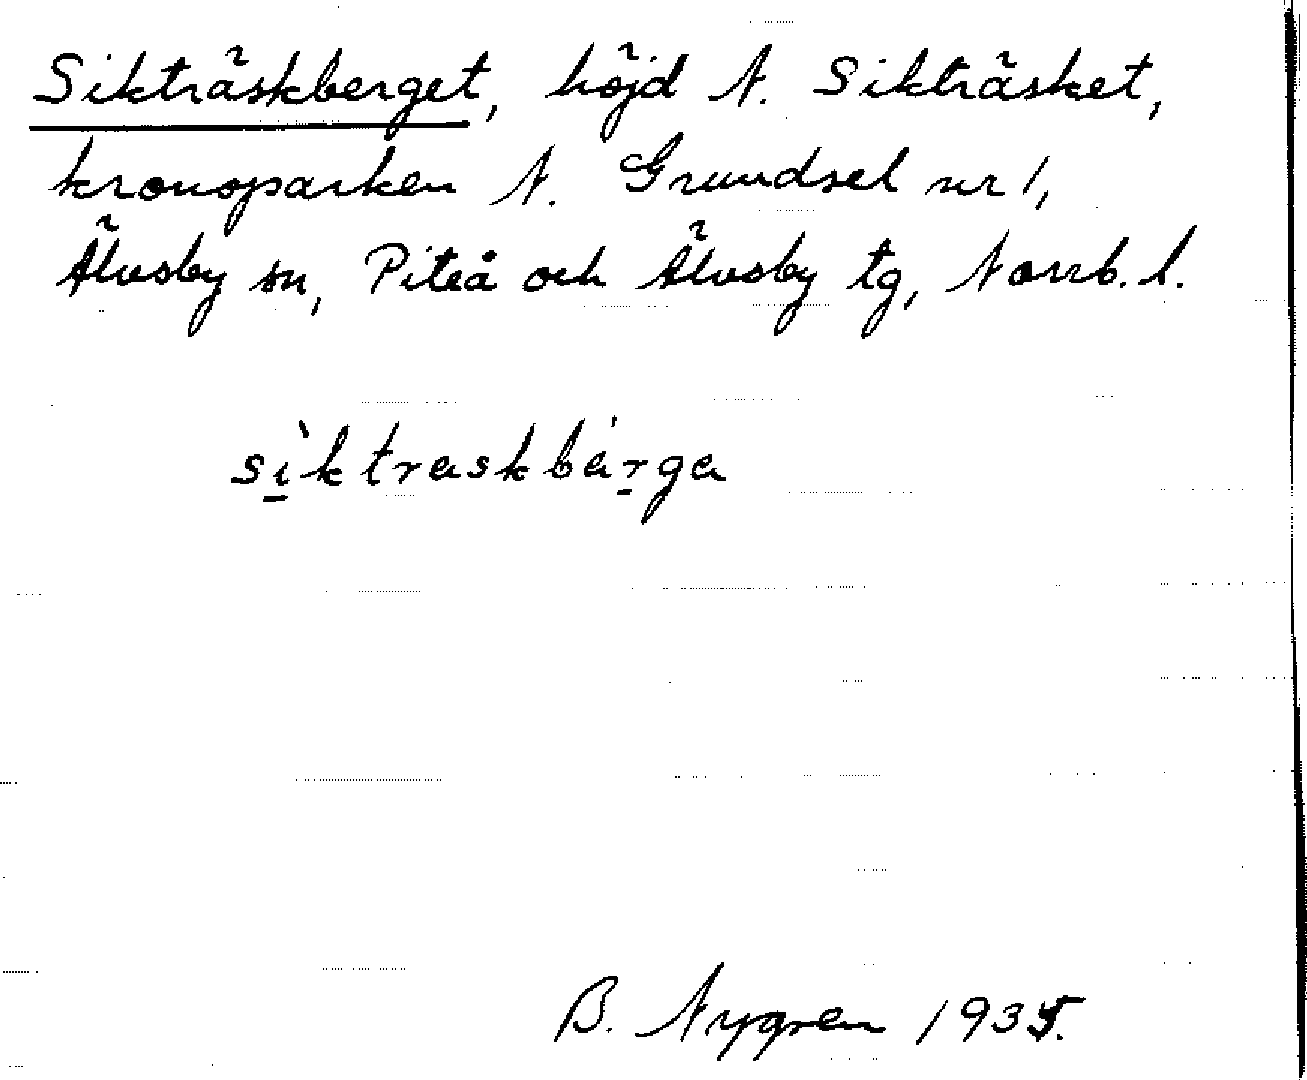 Sikträskberget, höjd N. Sikträsket,
kronoparken N. Grundsel nr 1,
Älvsby sn, Piteå och Älvsby tg, Norrb. l.
sìktraskbárga
B. Nygren 1935.